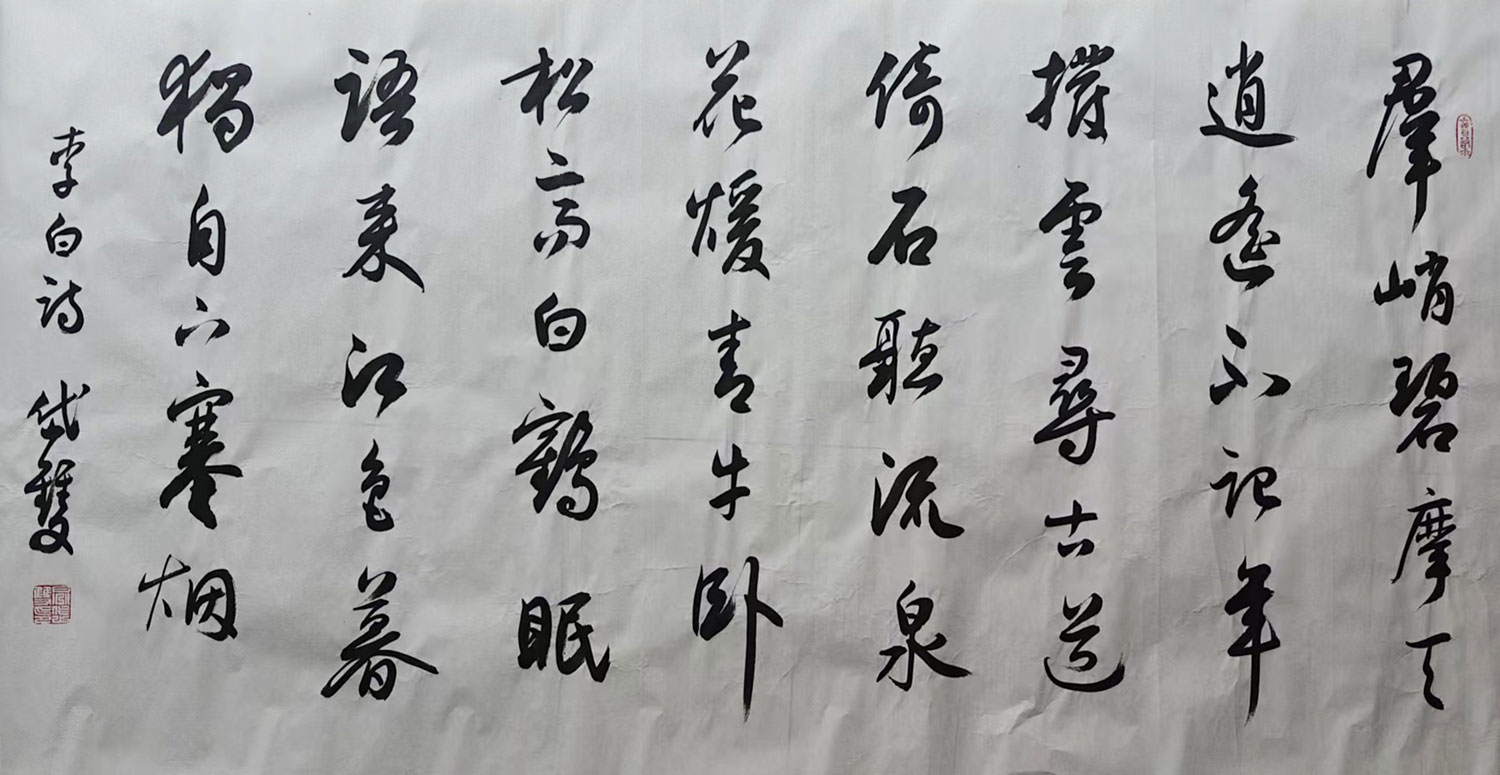 羣峭碧摩天
逍遙不記年
撥雲尋古道
倚石聽流泉
花煖青牛卧
松高白鶴眠
語来江色暮
獨自下寒烟
李白詩